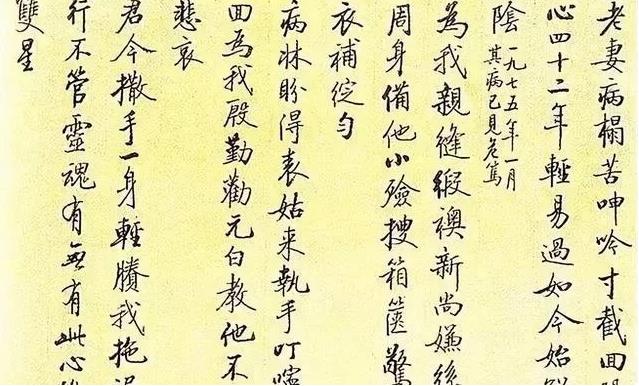 老妻病榻苦呻吟寸截回
心四十二年輕易過如今始
陰
一九七五年一月
其病已見危篤
為我親縫緞襖新尚嫌絲
周身備他小殮搜箱篋驚
衣補綻勻
病牀盼得表姑来執手叮嚀
回為我殷勤勸元白教他不
悲哀
君今撒手一身輕賸我拖泥
行不管靈魂有無有此心
雙星